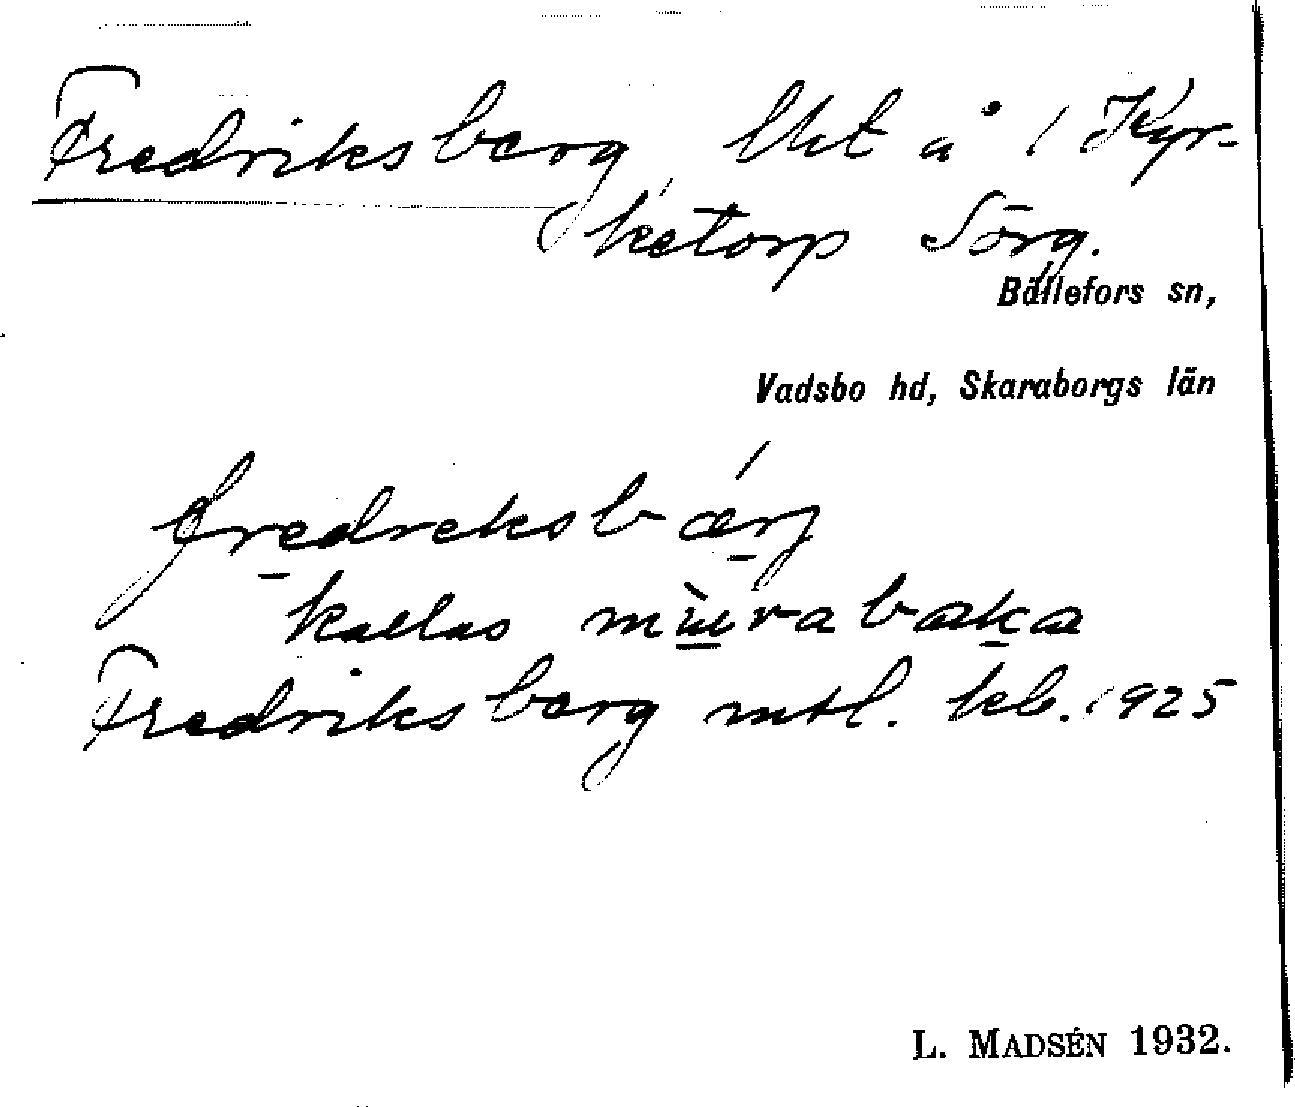 Fredriksberg lht å 1 Kyr-
ketorp Sörg.
Bällefors sn,
Vadsbo hd, Skaraborgs län
fredreksbærj
kallas mùrabaka
Fredriksberg mtl. kb. 1925
L. MADSÉN 1932.